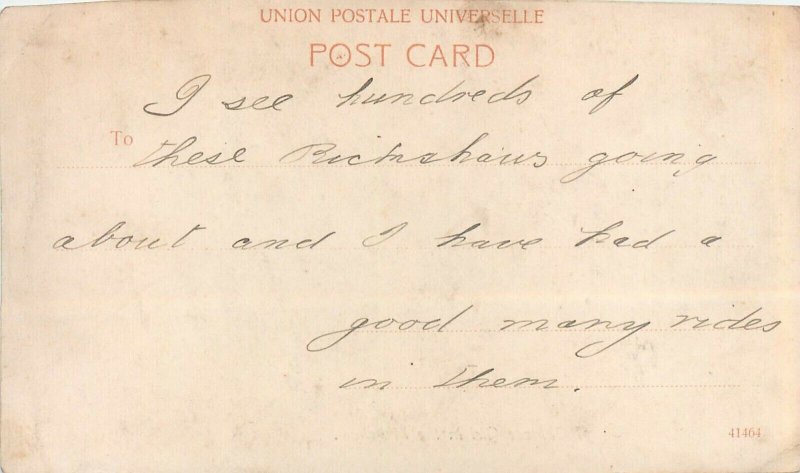 UNION POSTALE UNIVERSELLE
POST CARD
I see hundreds of
To
these Rickshaws going
about and I have had a
good many rides
in them.
41464